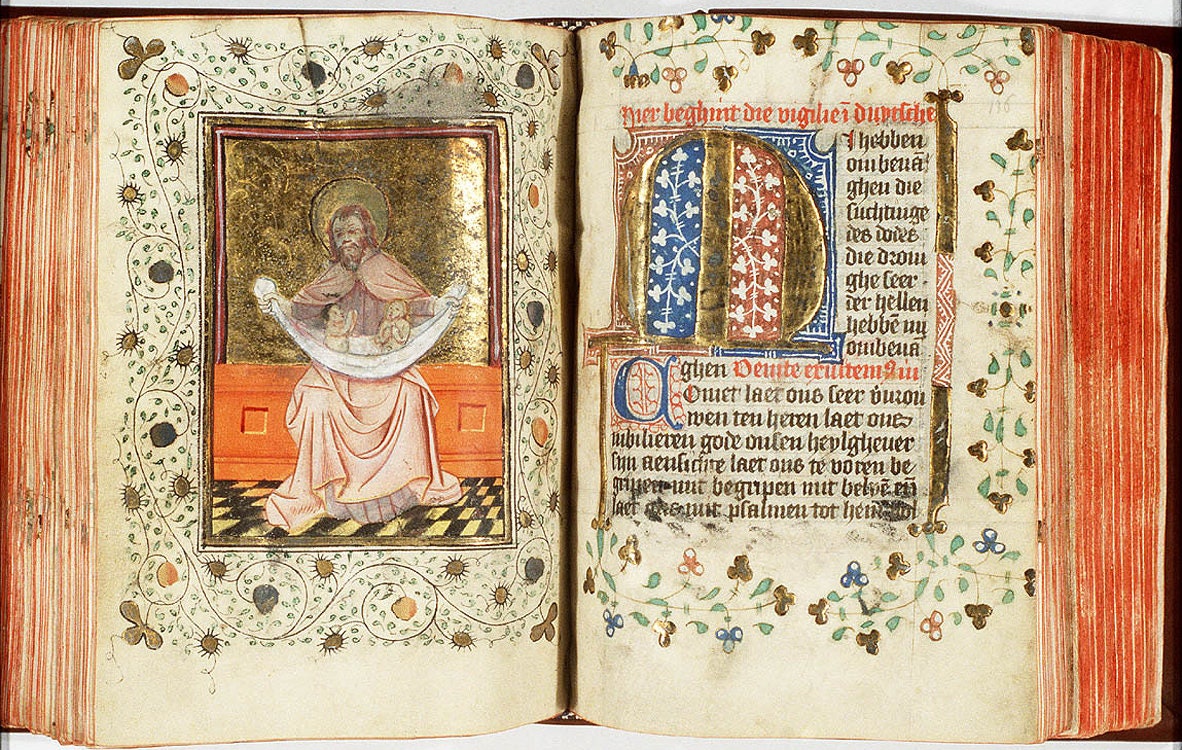 Hier beghint die vigiliē duytsche
M I hebben
ombeuā
ghen die
suchtinge
des dodes
die drouu
ghe seer
der hellen
hebbē mi
ombeuā
ghen Venite exultem9 īu
Comet laet ons seer v̄urou
wen ten heren laet ons
iubilieren gode onsen heylgheuer
sijn aensichte laet ons te voren be
gripen mit begripen mit belyē eñ
laet ons mit psalmen tot hem
136